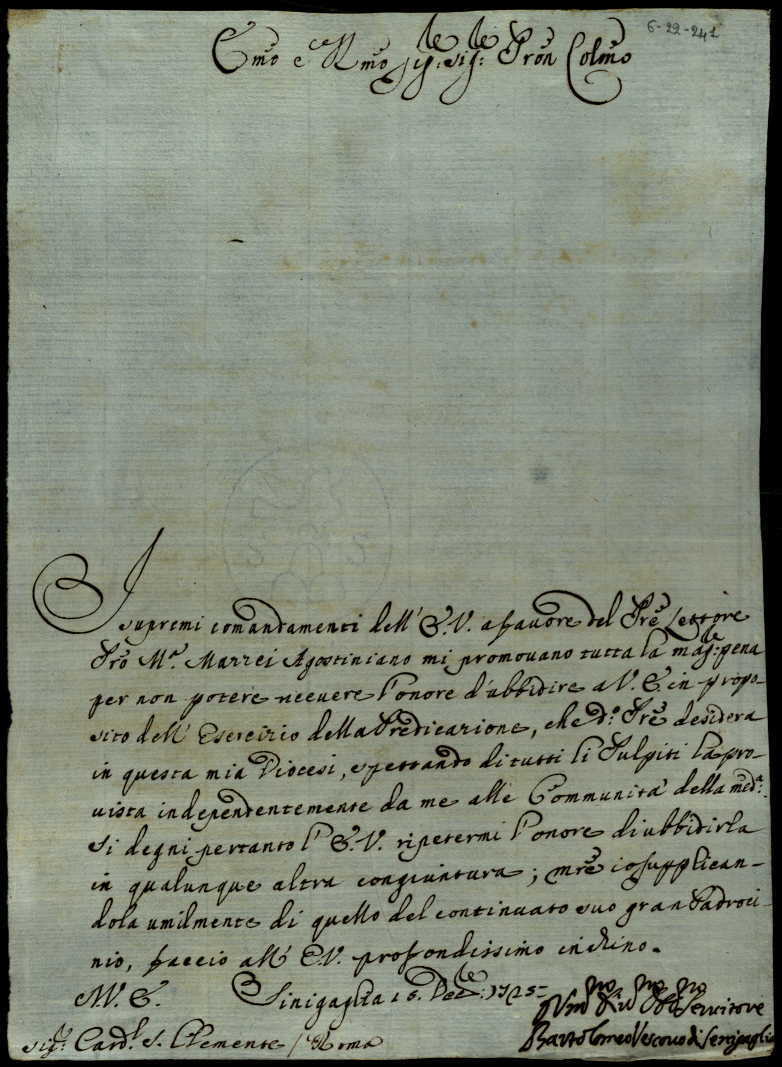 6-22-241
Emo e Rmo Sig: Sig: Pron Colmo
I supremi comandamenti dell' E.V. a favore del Pre Lettore
Fro Ma. Mazzei Agostiniano mi promovano tutta la magre: pena
per non potere ricevere l'onore d'ubbidire a V. E. in propo-
sito dell' Esercizio della Predicazione, che do. Pre desidera
in questa mia Diocesi, spettando di tutti li Pulpiti la pro-
vista independentemente da me alle Communità della meda:
Si degni pertanto l' E.V. ripetermi l'onore di ubbidirla
in qualunque altra congiuntura; mre io supplican-
dola umilmente di quello del continuato suo gran Padroci-
nio, faccio all' E.V. profondissimo inchino.
M. E. Sinigaglia 15. 1725
Servitore
Sigr. Cardl. S. Clemente / Roma
Bartolomeo Vescovo di Senigaglia